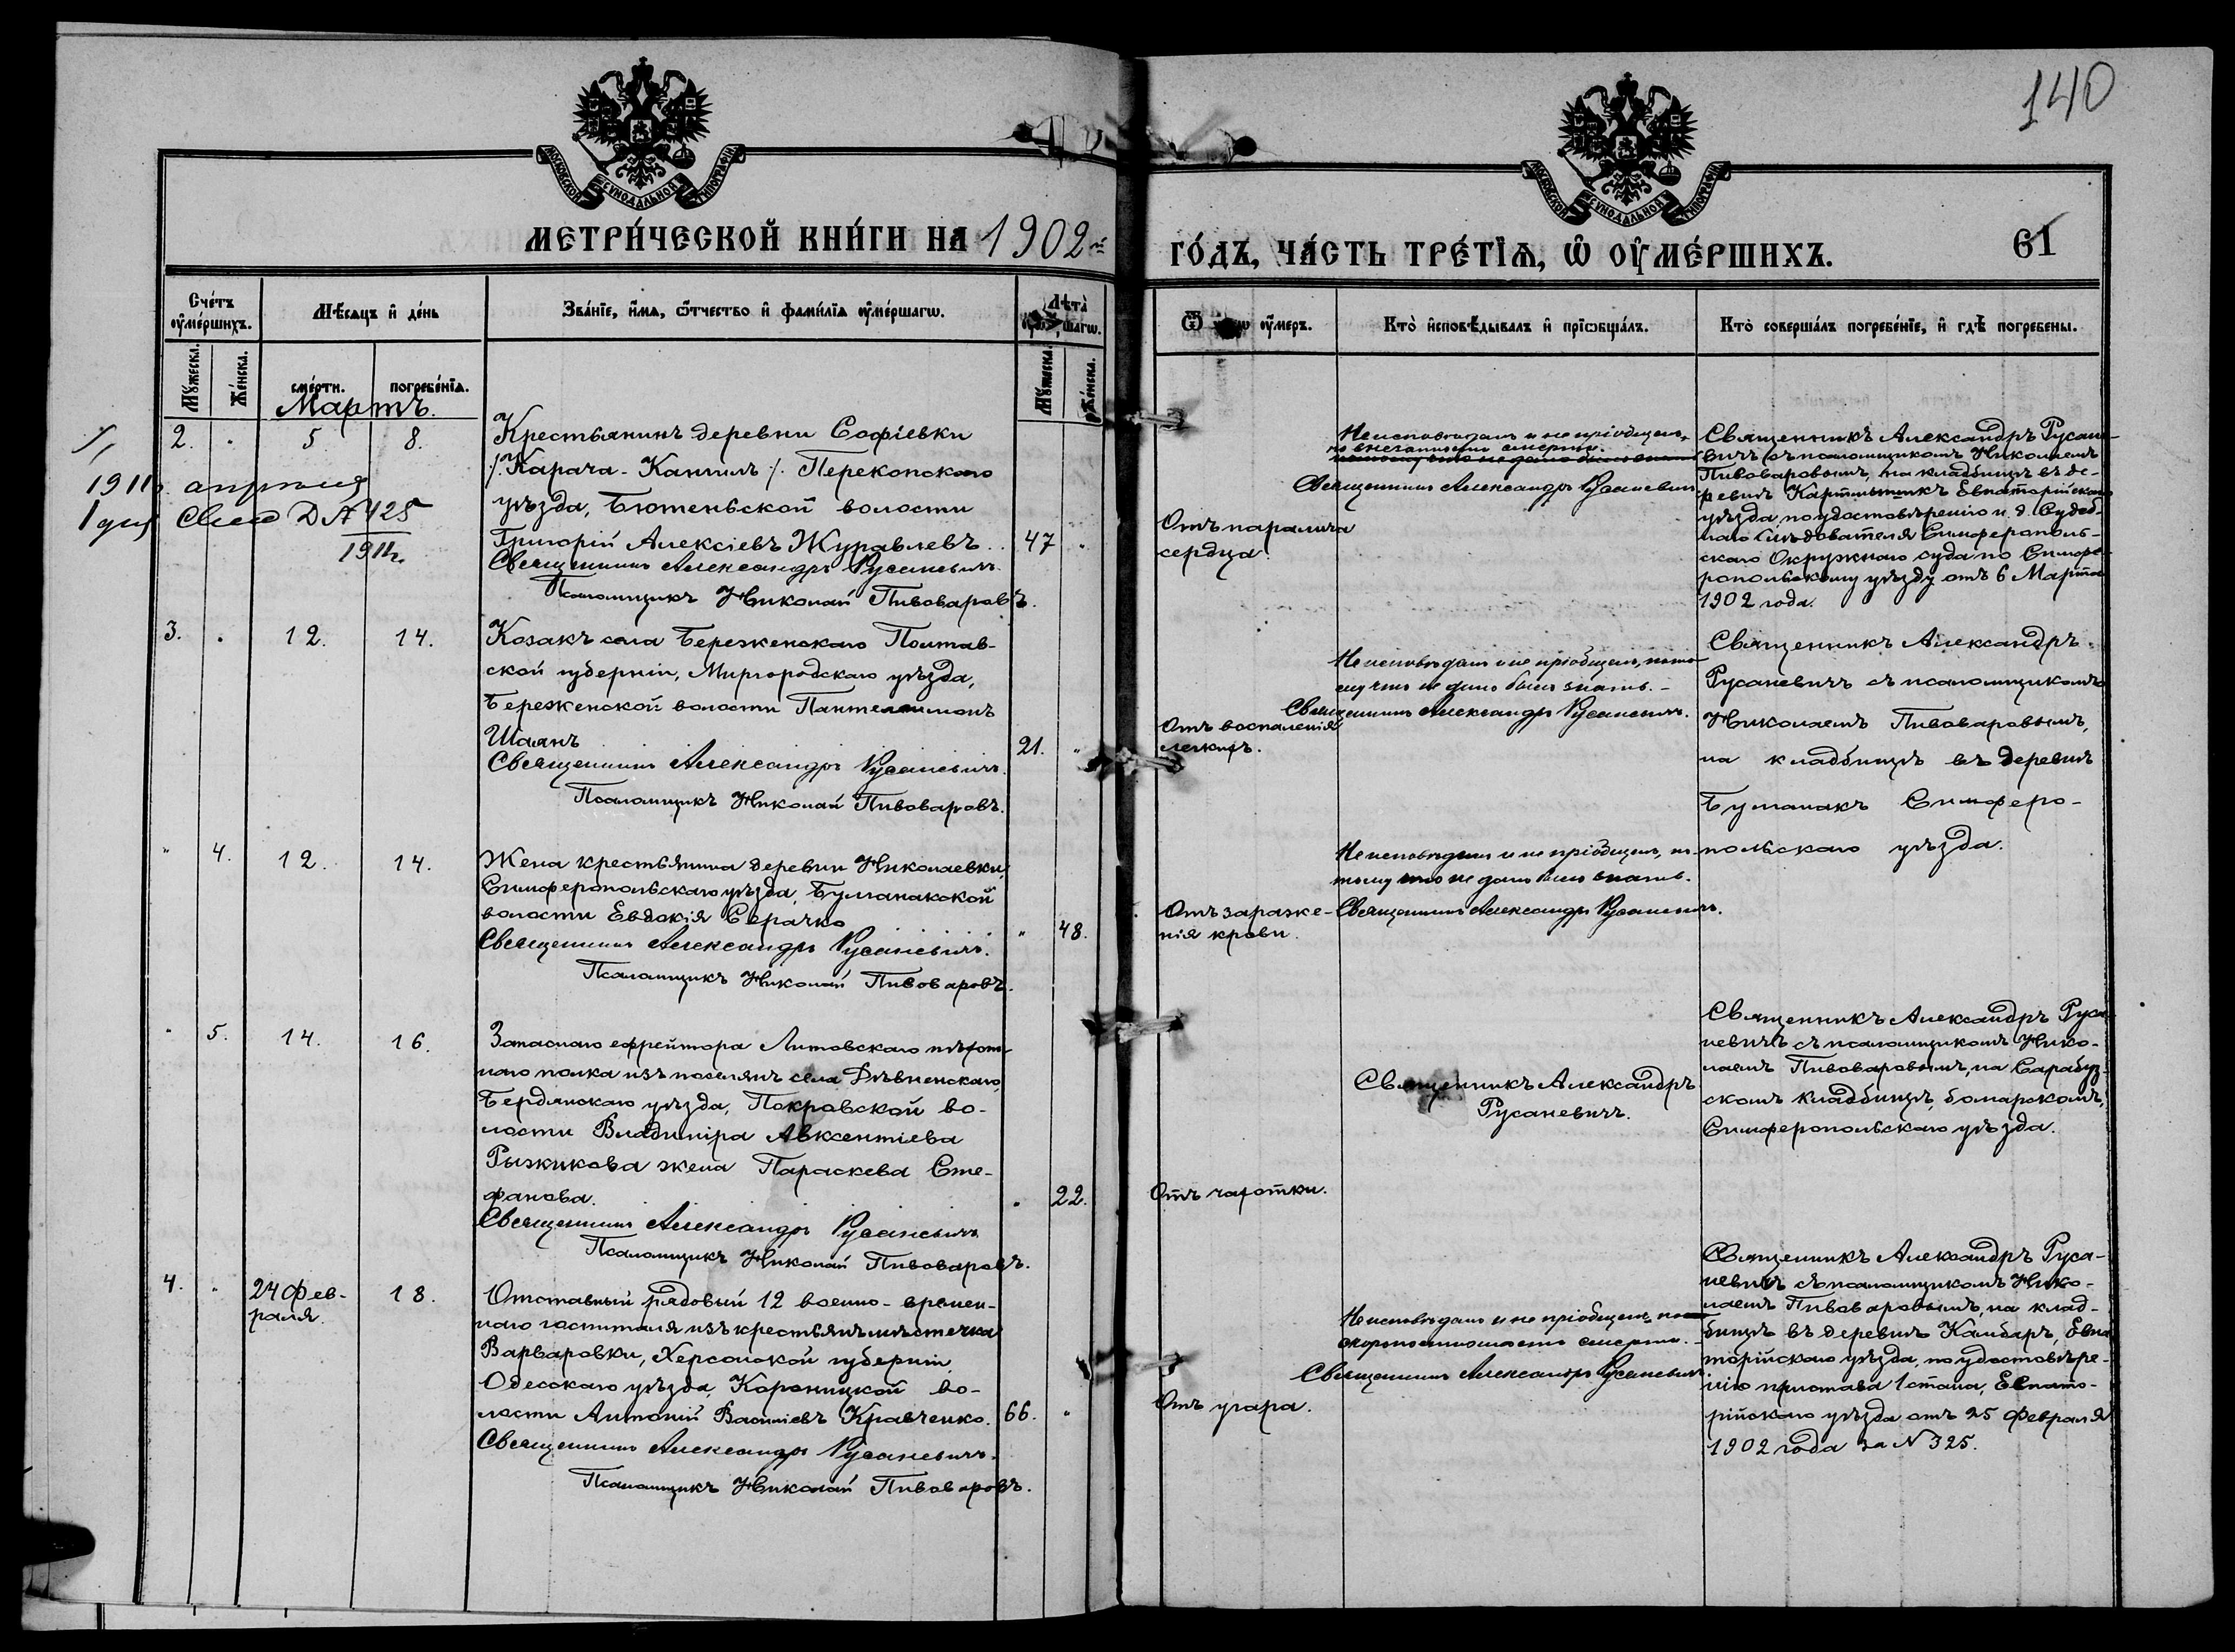 140
МОСКОВСКОЙ СѴНОДАЛЬНОЙ ТИПОГРАФІИ
МОСКОВСКОЙ СѴНОДАЛЬНОЙ ТИПОГРАФІИ
МЕТРИ́ЧЕСКОЙ КНИ́ГИ НА 1902 й
ГО́ДЪ, ЧА́СТЬ ТРЕ́ТІѦ, Ѿ ОУ҆МЕ́РШИХЪ.
61
Сче́тъ оу҆ме́ршихъ.
Мѣ́сяцъ и҆ де́нь
Зва́нїе, и҆́мя, ѻ҆́тчество и҆ фами́лїа оу҆ме́ршагѡ.
Лѣта̀
Мꙋ́жескл.
Же́нскл.
сме́рти.
погребе́нїя.
Мꙋ́жескл.
Же́нскл.
Ѿ оу҆́меръ.
Кто̀ и҆сповѣ́дывалъ и҆ прїѻбща́лъ.
Кто̀ соверша́лъ погребе́нїе, и҆ гдѣ̀ погребены.
Мартъ.
2.
5
8.
Крестьянинъ деревни Софіевки
/. Карача-Кангилъ /. Перекопскаго
уѣзда, Бютеньской волости
Григорій Алексіевъ Журавлевъ.
47
Священникъ Александръ Русаневичъ.
Псаломщикъ Николай Пивоваровъ.
1911 г. апрѣля
1 дня
Д № 425
1911 г.
Отъ паралича
сердца.
Не исповѣданъ и не пріобщенъ,
по внезапности смерти.
Священникъ Александръ Русаневичъ
Священникъ Александръ Русане-
вичъ съ псаломщикомъ Николаемъ
Пивоваровымъ, на кладбищѣ въ де-
ревнѣ Евпаторійскаго
уѣзда, по удостовѣренію и. д. Судеб-
наго Слѣдователя Симферополь-
скаго Окружнаго суда по Симфе-
ропольскому уѣзду отъ 6 Марта
1902 года.
3.
12.
14.
Козакъ села Береженскаго Полтав-
ской губерніи, Миргородскаго уѣзда,
Береженской волости Пантелеимонъ
Шаянъ
21.
Священникъ Александръ Русаневичъ.
Псаломщикъ Николай Пивоваровъ.
Отъ воспаленія
легкихъ.
Не исповѣданъ и не пріобщенъ, пото-
му что не дано было знать.-
Священникъ Александръ Русаневичъ.
Священникъ Александръ
Русаневичъ съ псаломщикомъ
Николаемъ Пивоваровымъ,
на кладбищѣ въ деревнѣ
Булганакъ Симферо-
польскаго уѣзда.
4.
12.
14.
Жена крестьянина деревни Николаевки,
Симферопольскаго уѣзда, Булганакской
волости Евдокія Серачко
48.
Священникъ Александръ Русаневичъ.
Псаломщикъ Николай Пивоваровъ.
Отъ зараже-
нія крови.
Не исповѣдана и не пріобщена, по-
тому что не дано было знать.
Священникъ Александръ Русаневичъ.
5.
14.
16.
Запаснаго ефрейтора Литовскаго пѣхот-
наго полка изъ поселянъ села
Бердянскаго уѣзда, Покровской во-
лости Владиміра Авксентіева
Рыжикова жена Параскева Сте-
фанова.
22.
Священникъ Александръ Русаневичъ
Псаломщикъ Николай Пивоваровъ.
Отъ чахотки.
Священникъ Александръ
Русаневичъ.
Священникъ Александръ Руса-
невичъ съ псаломщикомъ Нико-
лаемъ Пивоваровымъ, на Сарабуз-
скомъ кладбищѣ, болгарскомъ,
Симферопольскаго уѣзда.
4.
24 Фев-
раля.
18.
Отставный рядовый 12 военно-времен-
наго госпиталя изъ крестьянъ мѣстечка
Варваровки, Херсонской губерніи
Одесскаго уѣзда, Кореницкой во-
лости Антоній Василіевъ Кравченко.
66.
Священникъ Александръ Русаневичъ.
Псаломщикъ Николай Пивоваровъ.
Отъ угара.
Не исповѣданъ и не пріобщенъ, по
скоропостижности смерти.
Священникъ Александръ Русаневичъ
Священникъ Александръ Руса-
невичъ съ псаломщикомъ Нико-
лаемъ Пивоваровымъ, на клад-
бищѣ въ деревнѣ Камбаръ, Евпа-
торійскаго уѣзда, по удостовѣре-
нію пристава 1 стана, Евпато-
рійскаго уѣзда отъ 25 Февраля
1902 года за N 325.